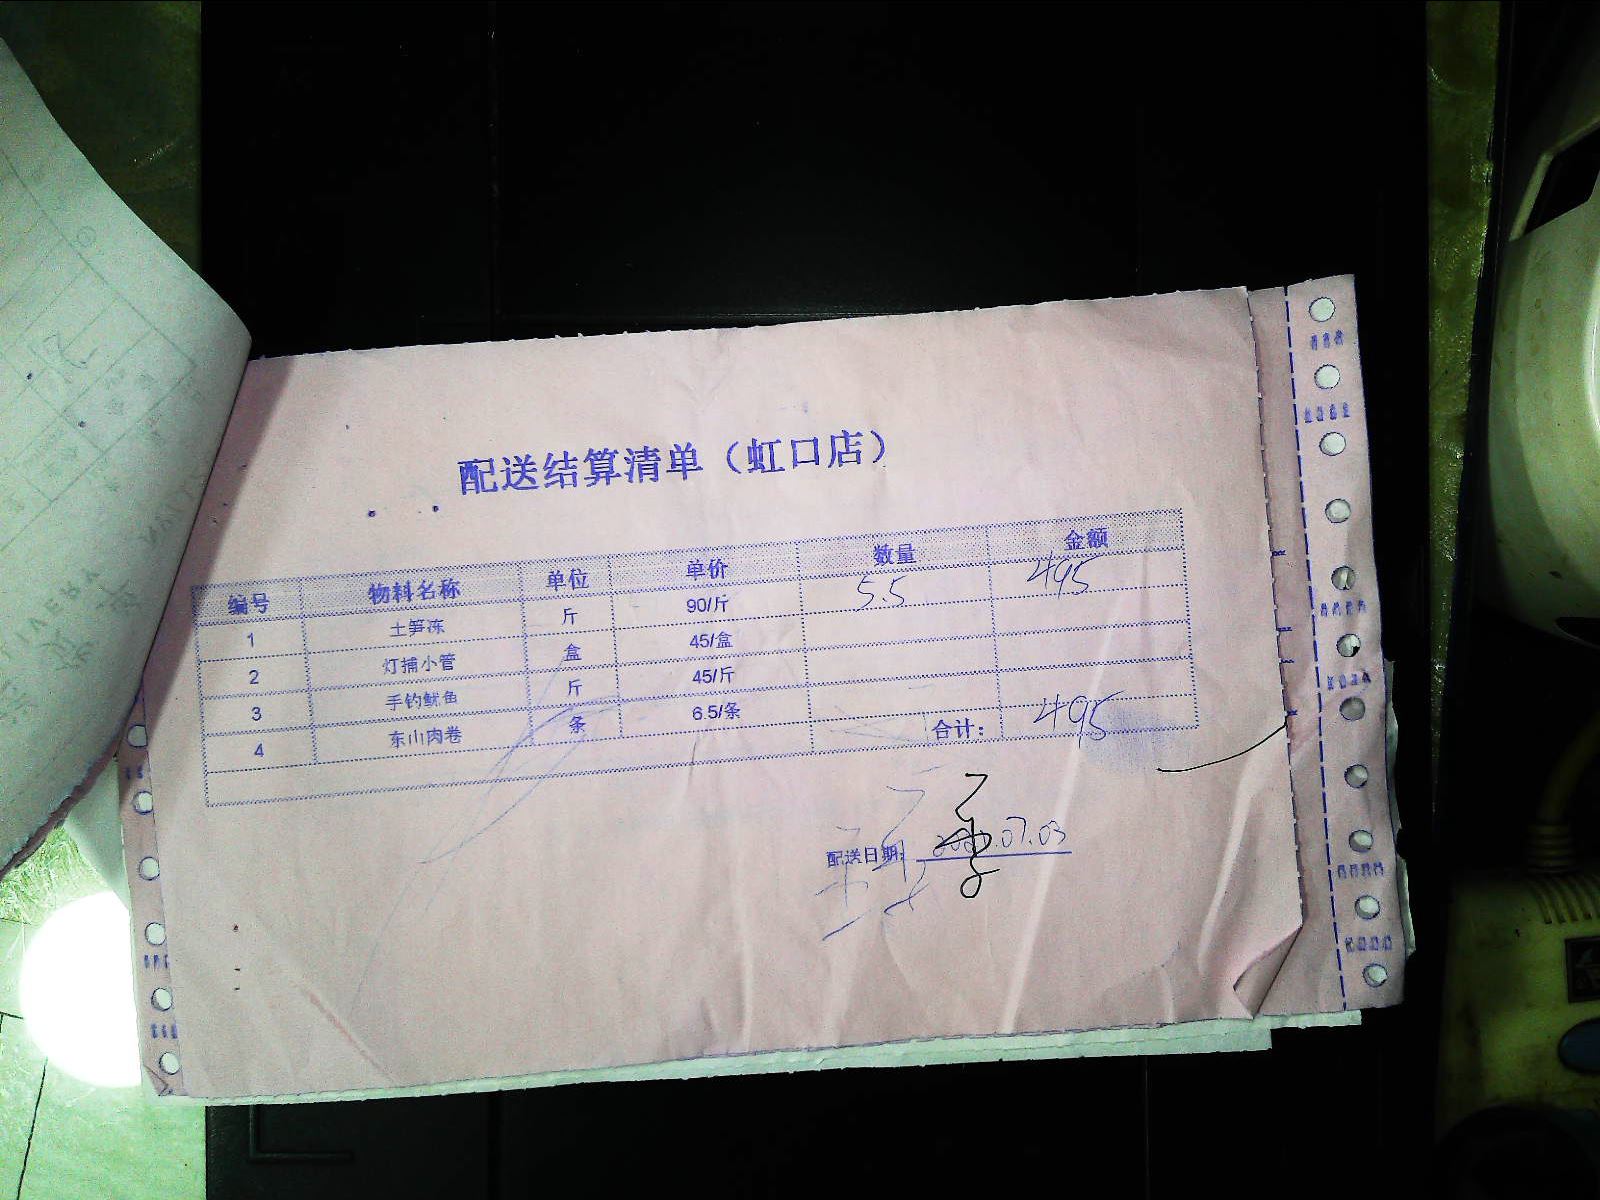 配送结算清单（虹口店）
编号 物料名称 单位 单价 数量 金额
1 土笋冻 斤 90/斤 5.5 495
2 灯捕小管 盒 45/盒
3 手钓鱿鱼 斤 45/斤
4 东山肉卷 条 6.5/条
合计： 495
配送日期： .07.03